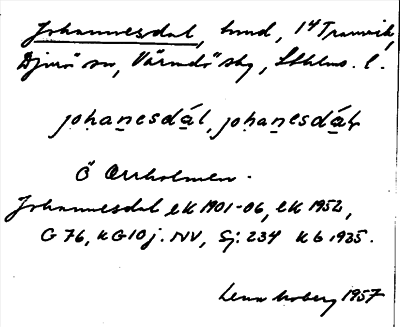 Johannesdal, hmd, 14 Tranvik,
Djurö sn, Värmdö skg, Sthlms. l.
johanesdál, johanesdál
Ö Orrholmen.
Johannesdal eK 1901-06, eK 1952,
G 76, KG10 j. NV, Sj: 234 Kb 1935.
Lena Moberg 1957